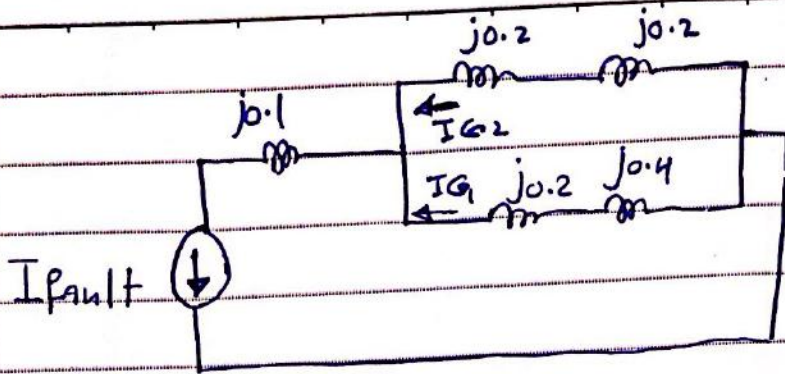 j0.2 j0.2
j0.1
IG2
IG1 j0.2 j0.4
Ifault